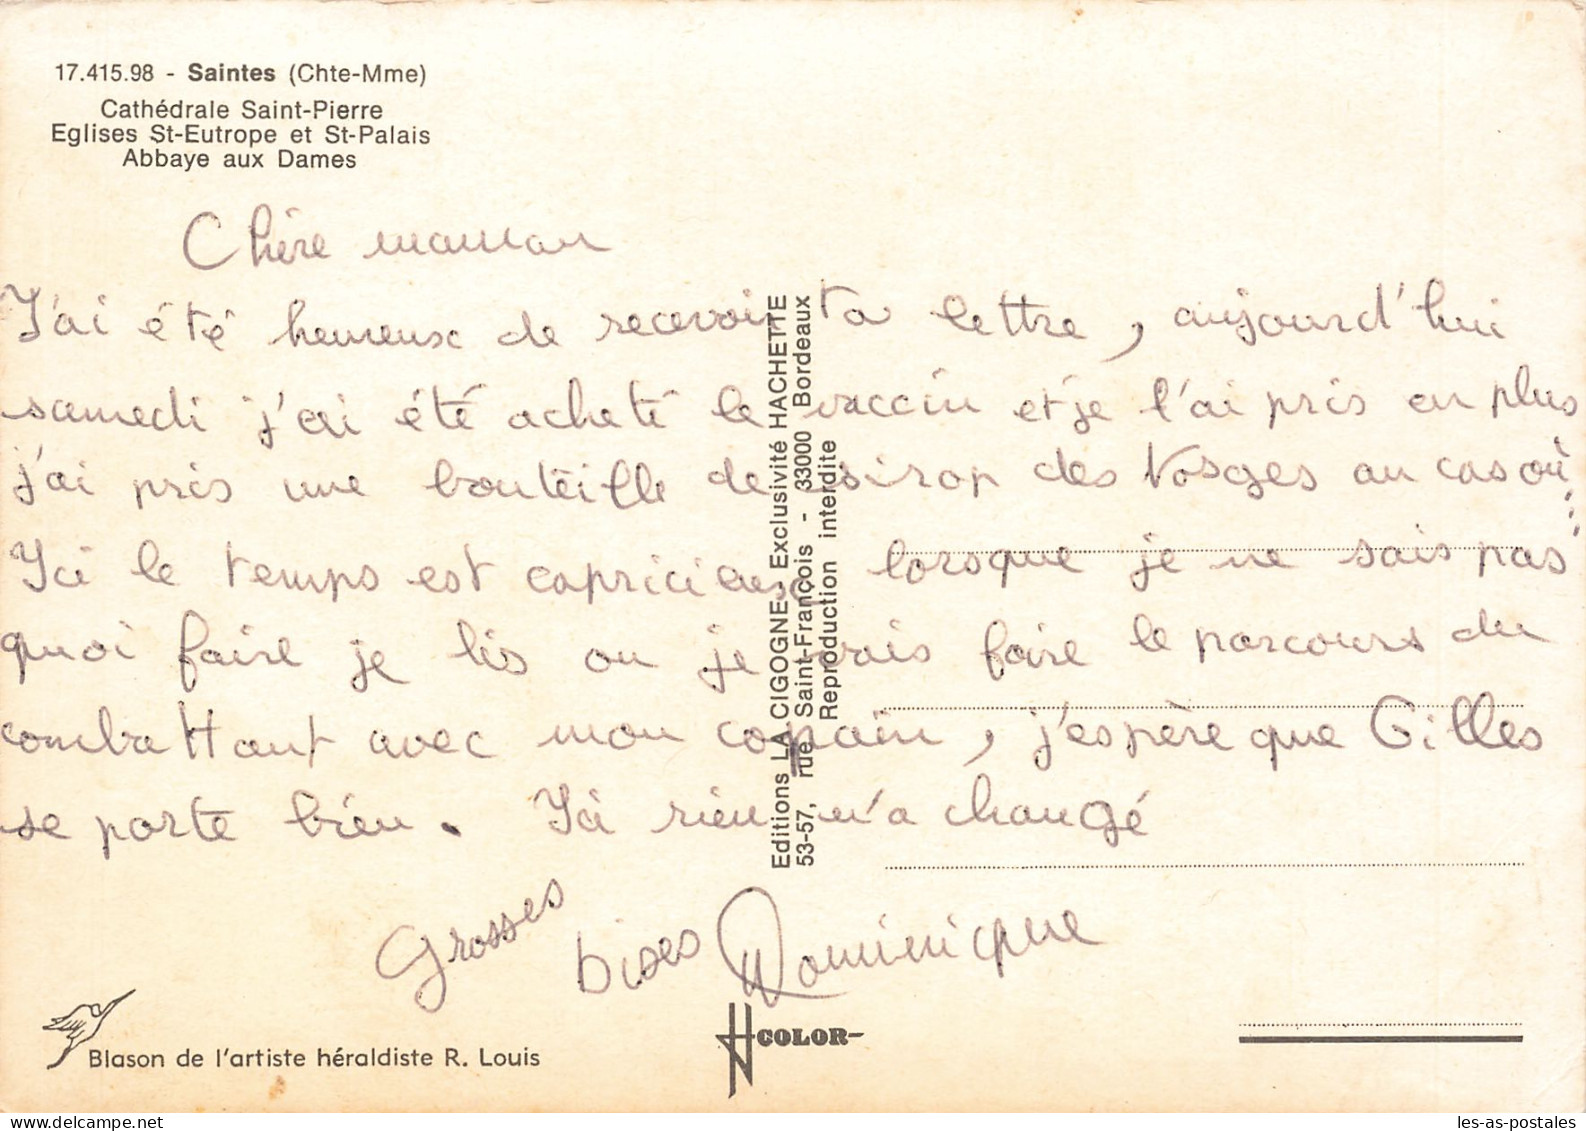 17.415.98 - Saintes (Chte-Mme)
Cathédrale Saint-Pierre
Eglises St-Eutrope et St-Palais
Abbaye aux Dames
Chère maman
J'ai été heureuse de recevoir ta lettre, aujourd'hui
samedi j'ai été acheté le vaccin et je l'ai pris en plus
j'ai pris une bouteille de sirop des Vosges au cas où...
Ici le temps est capricieux lorsque je ne sais pas
quoi faire je lis ou je vais faire le parcours du
combattant avec mon copain, j'espère que Gilles
se porte bien. Ici rien n'a changé
Grosses bises Dominique
Editions LA CIGOGNE Exclusivité HACHETTE
53-57, rue Saint-François - 33000 Bordeaux
Reproduction interdite
Blason de l'artiste héraldiste R. Louis
COLOR
les-as-postales